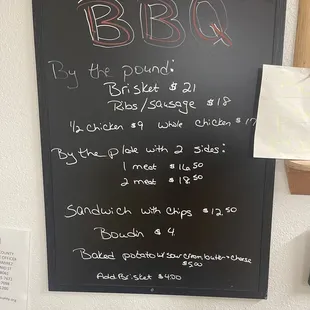 BBQ
By the pound:
Brisket $21
Ribs/Sausage $18
1/2 chicken $9 whole chicken $17
By the plate with 2 sides:
1 meat $16.50
2 meat $18.50
Sandwich with chips $12.50
Boudin $4
Baked potato w/ sour cream butter + cheese
$5.00
Add Brisket $4.00